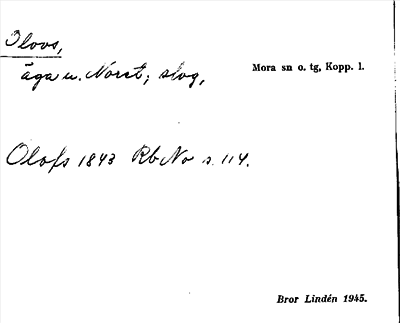 Olovs,
äga u. Noret; skog,
Mora sn o. tg, Kopp. l.
Olofs 1843 Rb No s. 114.
Bror Lindén 1945.